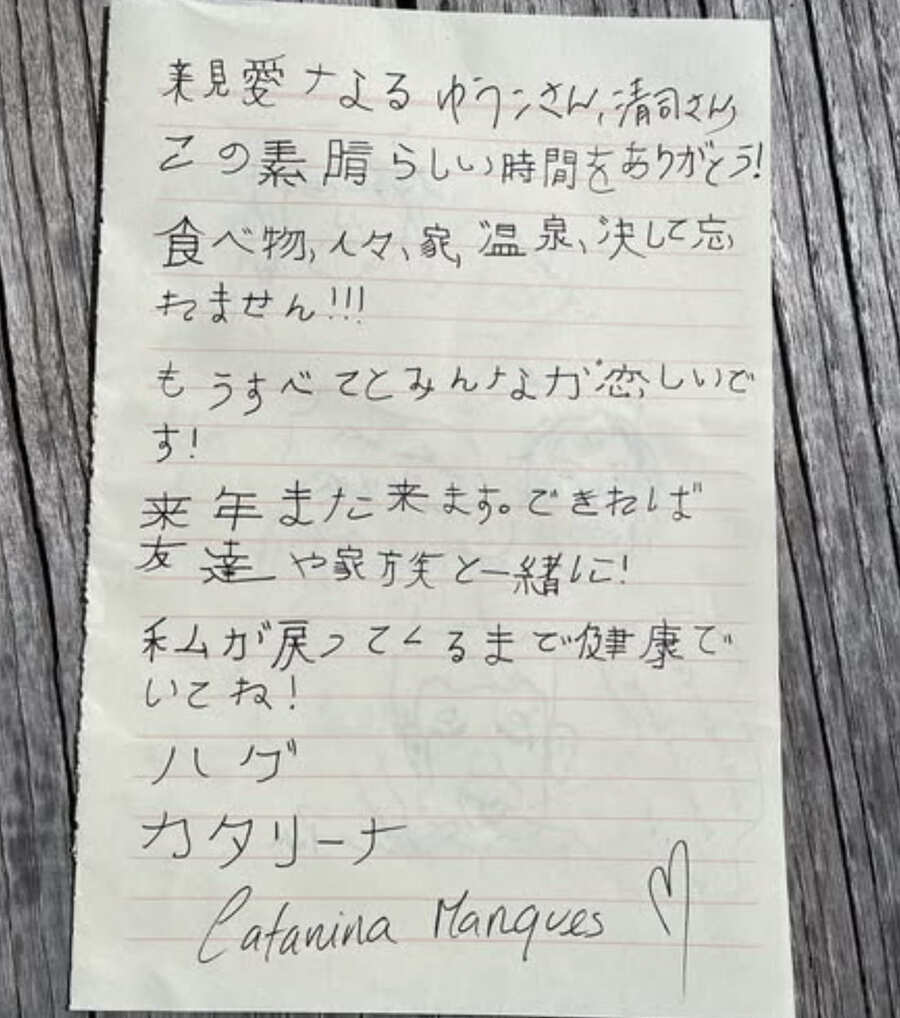 親愛なる ゆうこさん、清司さん
この素晴らしい時間をありがとう!
食べ物、人々、家、温泉、決して忘
れません!!!
もうすべてとみんなが恋しいで
す!
来年また来ます。できれば
友達や家族と一緒に!
私が戻ってくるまで健康で
いてね!
ハグ
カタリーナ
Catarina Marques